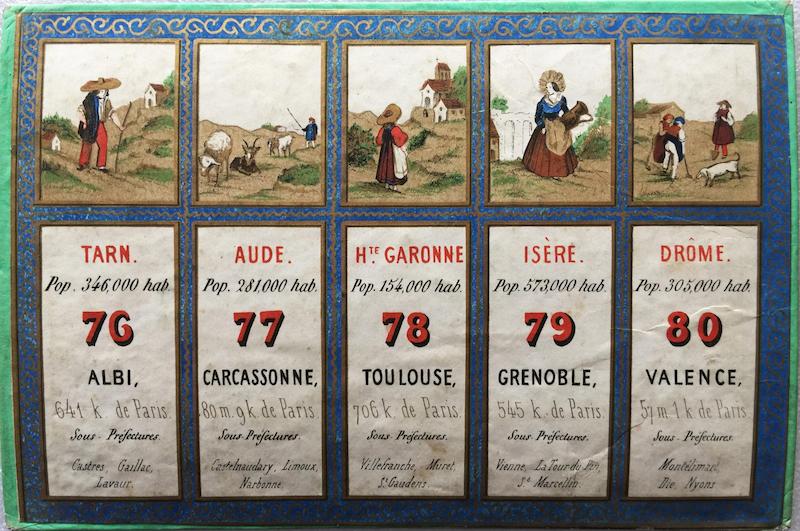 TARN.
Pop. 346,000 hab.
76
ALBI,
641 k. de Paris.
Sous-Préfectures.
Castres, Gaillac,
Lavaur.
AUDE.
Pop. 281,000 hab.
77
CARCASSONNE,
80 m. 9 k de Paris.
Sous-Préfectures.
Castelnaudary, Limoux,
Narbonne.
HTE GARONNE
Pop. 154,000 hab.
78
TOULOUSE,
706 k. de Paris.
Sous-Préfectures.
Villefranche, Muret,
St Gaudens.
ISÈRE.
Pop. 573,000 hab.
79
GRENOBLE,
545 k. de Paris.
Sous-Préfectures.
Vienne, La Tour du Pin,
St Marcellin.
DRÔME.
Pop. 305,000 hab.
80
VALENCE,
57 m. 1 k de Paris.
Sous-Préfectures.
Montélimart,
Die, Nyons